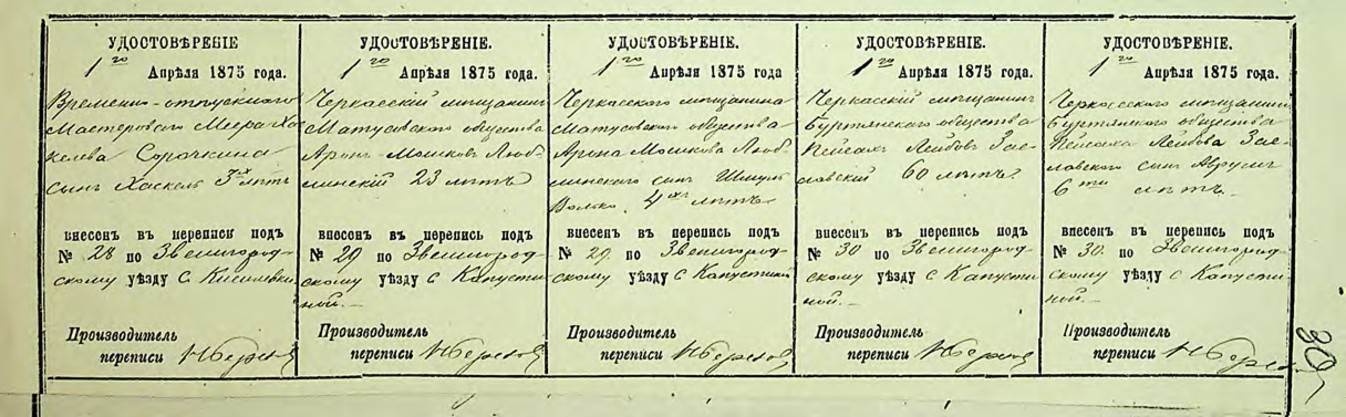 УДОСТОВѢРЕНІЕ
1го Апрѣля 1875 года.
Временно-отпускного
Мастерового Меера Хас
келева Сорочкина
сынъ Хаскель 3х лѣтъ
внесенъ въ переписи подъ
№ 28 по Звенигород-
скому уѣзду С.
Производитель
переписи
УДОСТОВѢРЕНІЕ.
1го Апрѣля 1875 года.
Черкасскій мѣщанинъ
Матусовского общества
Аронъ-Мошковъ Люб-
линскій 23 лѣтъ
внесенъ въ перепись подъ
№ 29 по Звенигород-
скому уѣзду С. Капусти
ной.-
Производитель
переписи
УДОСТОВѢРЕНІЕ.
1го Апрѣля 1875 года
Черкасского мѣщанина
Матусовского общества
Арона Мошкова Люб-
линского сынъ Шмуль
Волько 4хъ лѣтъ
внесенъ въ перепись подъ
№ 29 по Звенигород-
скому уѣзду С.
Производитель
переписи
УДОСТОВѢРЕНІЕ.
1го Апрѣля 1875 года.
Черкасскій мѣщанинъ
Буртянского общества
Пейсахъ Лейбовъ Зас-
лавскій 60 лѣтъ.
внесенъ въ перепись подъ
№ 30 по Звенигород-
скому уѣзду С. Капусти
ной.-
Производитель
переписи
УДОСТОВѢРЕНІЕ.
1го Апрѣля 1875 года.
Черкасского мѣщанина
Буртянского общества
Пейсаха Лейбова Зас-
лавского сынъ Аврумъ
6ти лѣтъ.
внесенъ въ перепись подъ
№ 30. по Звенигород-
скому уѣзду С. Капусти-
ной.-
Производитель
переписи